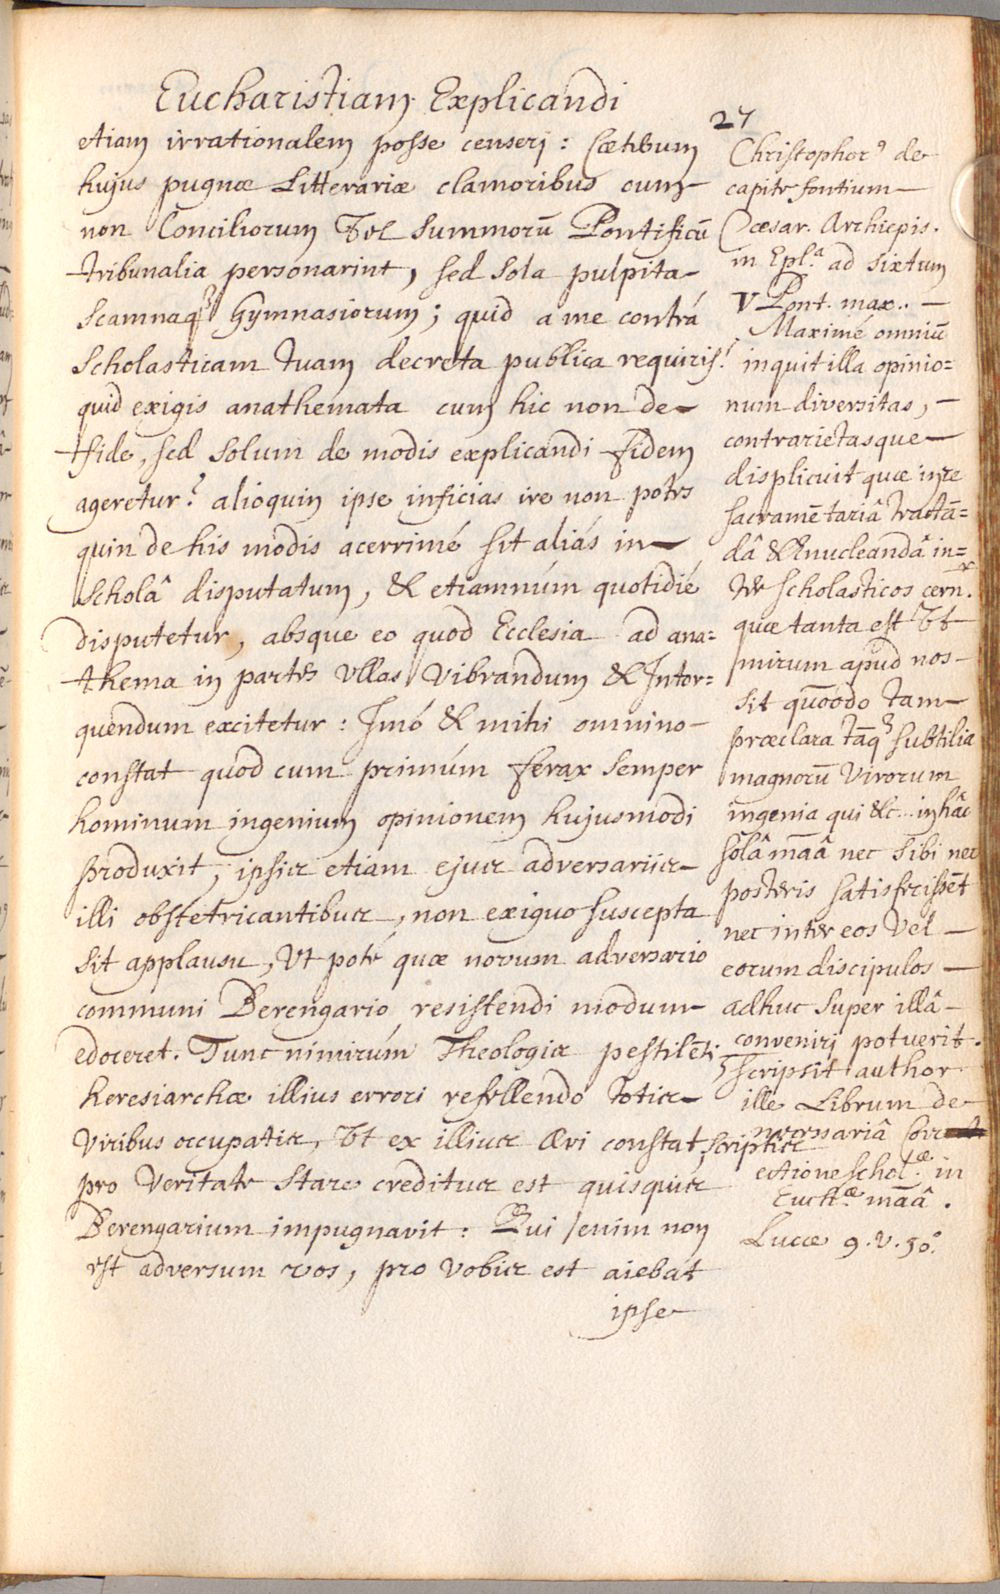 Eucharistiam Explicandi
27
etiam irrationalem posse censeri: Cæterum
hujus pugnæ Litterariæ clamoribus cum
non Conciliorum Vel Summorū Pontificū
tribunalia personarint, sed sola pulpita
scamnaq3 Gymnasiorum; quid a me contrá
Scholasticam tuam decreta publica requiris!
quid exigis anathemata cum hic non de
fide, sed solum de modis explicandi fidem
ageretur? alioquin ipse inficias ire non potes
quin de his modis acerrimé sit aliás in
Scholâ disputatum, & etiamnúm quotidié
disputetur, absque eo quod Ecclesia ad ana=
thema in partes Vllas Vibrandum & Intor=
quendum excitetur: Imó & mihi omnino
constat quod cum primúm ferax semper
hominum ingenium opinionem hujusmodi
produxit, ipsis etiam ejus adversariis
illi obstetricantibus, non exiguo suscepta
sit applausu, Vt poté quæ novum adversario
communi Berengario resistendi modum
edoceret. Tunc nimirúm Theologis pestilēti
heresiarchæ illius errori refellendo totis
Viribus occupatis, Vt ex illius Ævi constat scriptis
pro Veritate stare creditus est quisquis
Berengarium impugnavit: Qui enim non
est adversum vos, pro vobis est aiebat
ipse
Christophor9 de
capite fontium
Cæsar. Archiepis.
in Epl.a ad Sixtum
V Pont. max..
Maximé omniū
inquit illa opinio=
num diversitas,
contrarietasque
displicuit quæ in re
sacramētariâ tractā=
dâ & Enucleandâ in=
ter scholasticos cern.r
quæ tanta est Vt
mirum apud nos
sit quōodo tam
præclara tāq3 subtilia
magnorū Virorum
ingenia qui &c.. in hâc
solâ māâ nec sibi nec
posteris satisfecissēt
nec inter eos Vel
eorum discipulos
adhuc super illâ
conveniri potuerit.
Scripsit author
ille Librum de
necessariâ Corr
ectione schol.æ in
Euch.æ māâ.
Lucæ 9.v.50.